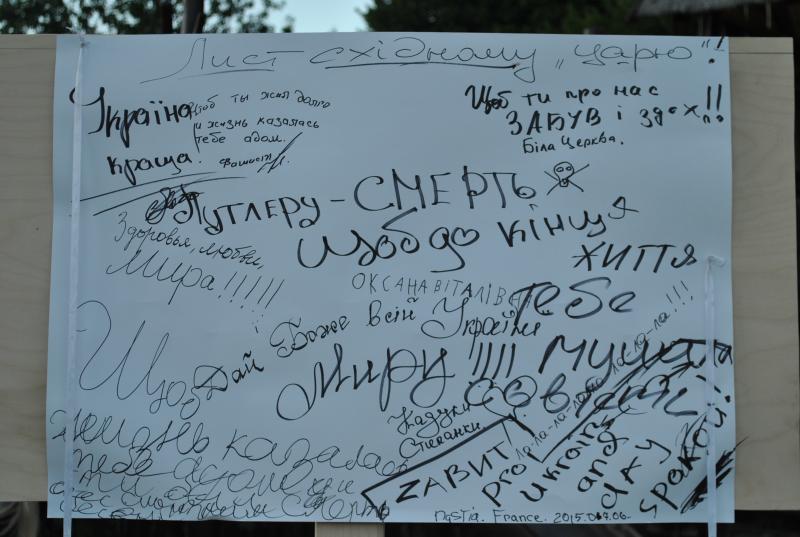 Лист східному „царю"!
Україна
краща.
щоб ти жил долго
и жизнь казалась
тебе адом.
фашист
Щоб ти про нас
ЗАБУВ і здох!!
Біла Церква.
ПУТЛЕРУ - СМЕРТЬ
Здоровья, любви,
Мира!!!!!
Щоб до кінця
життя
тебе
мучила
совість
ОКСАНА ВІТАЛІЇВ
Дай Боже всій Україні
Миру!!!!
Щоб
жизнь казалась
Кадуки
Степанки
ла-ла-ла-ла-ла-ла-ла-ла!!!
ZАВИТ!
pro
Ukrainy
and
dAY
spokoii!
nastia. France. 2015.